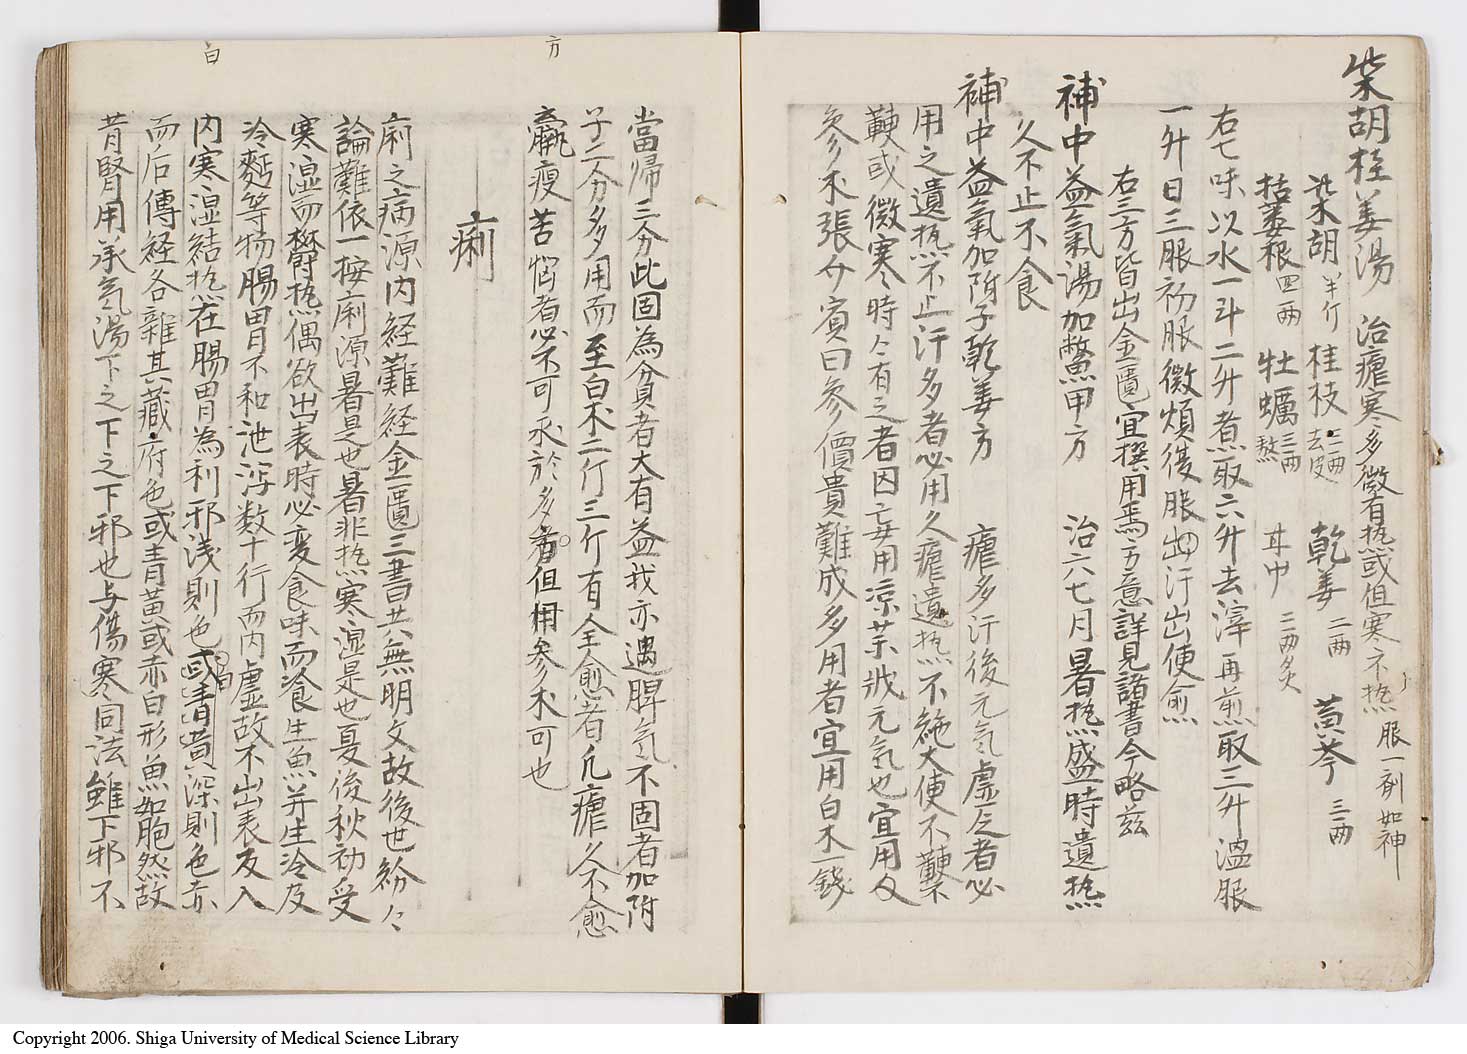 柴胡桂姜湯 治瘧寒多微有热或但寒不热 服一剤如神
柴胡 半斤 桂枝 三両 去皮 乾姜 二両 黄芩 三両
括蔞根 四両 牡蠣 三両 熬 甘中 二両炙
右七味以水一斗二升煮取六升去滓再煎取三升溫服
一升日三服初服微煩復服汗出便愈
右三方皆出金匱宜撰用焉方意詳見諸書今略茲
補中益氣湯加鱉甲方 治六七月暑热盛時遺热
久不止不食
補中益氣加附子乾姜方 瘧多汗後元気虚乏者必
用之遺热不止汗多者必用久瘧遺热不絶大便不鞕
鞕或微寒時々有之者因妄用凉薬戕元気也宜用人
参朮張介賓曰参價貴難成多用者宜用白朮一錢
當帰三分此固為貧者大有益我亦遇脾気不固者加附
子二分多用而至白朮二斤三斤有全愈者凡瘧久不愈
羸瘦苦悩者必不可求於多方但用参朮可也
痢
痢之病源内経難経金匱三書共無明文故後世紛々
論難依一按痢源暑是也暑非热寒湿是也夏後秋初受
寒湿而欝热偶欲出表時必変食味而飡生魚并生冷及
冷麪等物腸胃不和泄瀉数十行而内虚故不出表反入
内寒湿結热在腸胃為利邪浅則色白或青黄深則色赤
而后傳経各雜其藏府色或青黄或赤白形魚如胞然故
昔賢用承気湯下之下之下邪也与傷寒同法雖下邪不
方
白
Copyright 2006. Shiga University of Medical Science Library